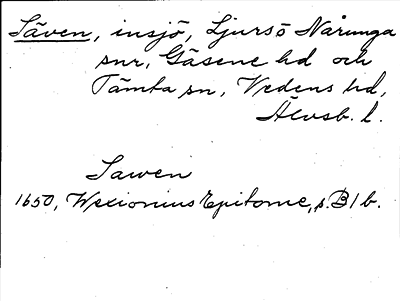 Säven, insjö, Ljursö Nårunga
snr, Gäsene hd och
Tämta sn, Vedens hd,
Älvsb. l.
Sawen
1650, Wexionius Epitome, s. B1b.